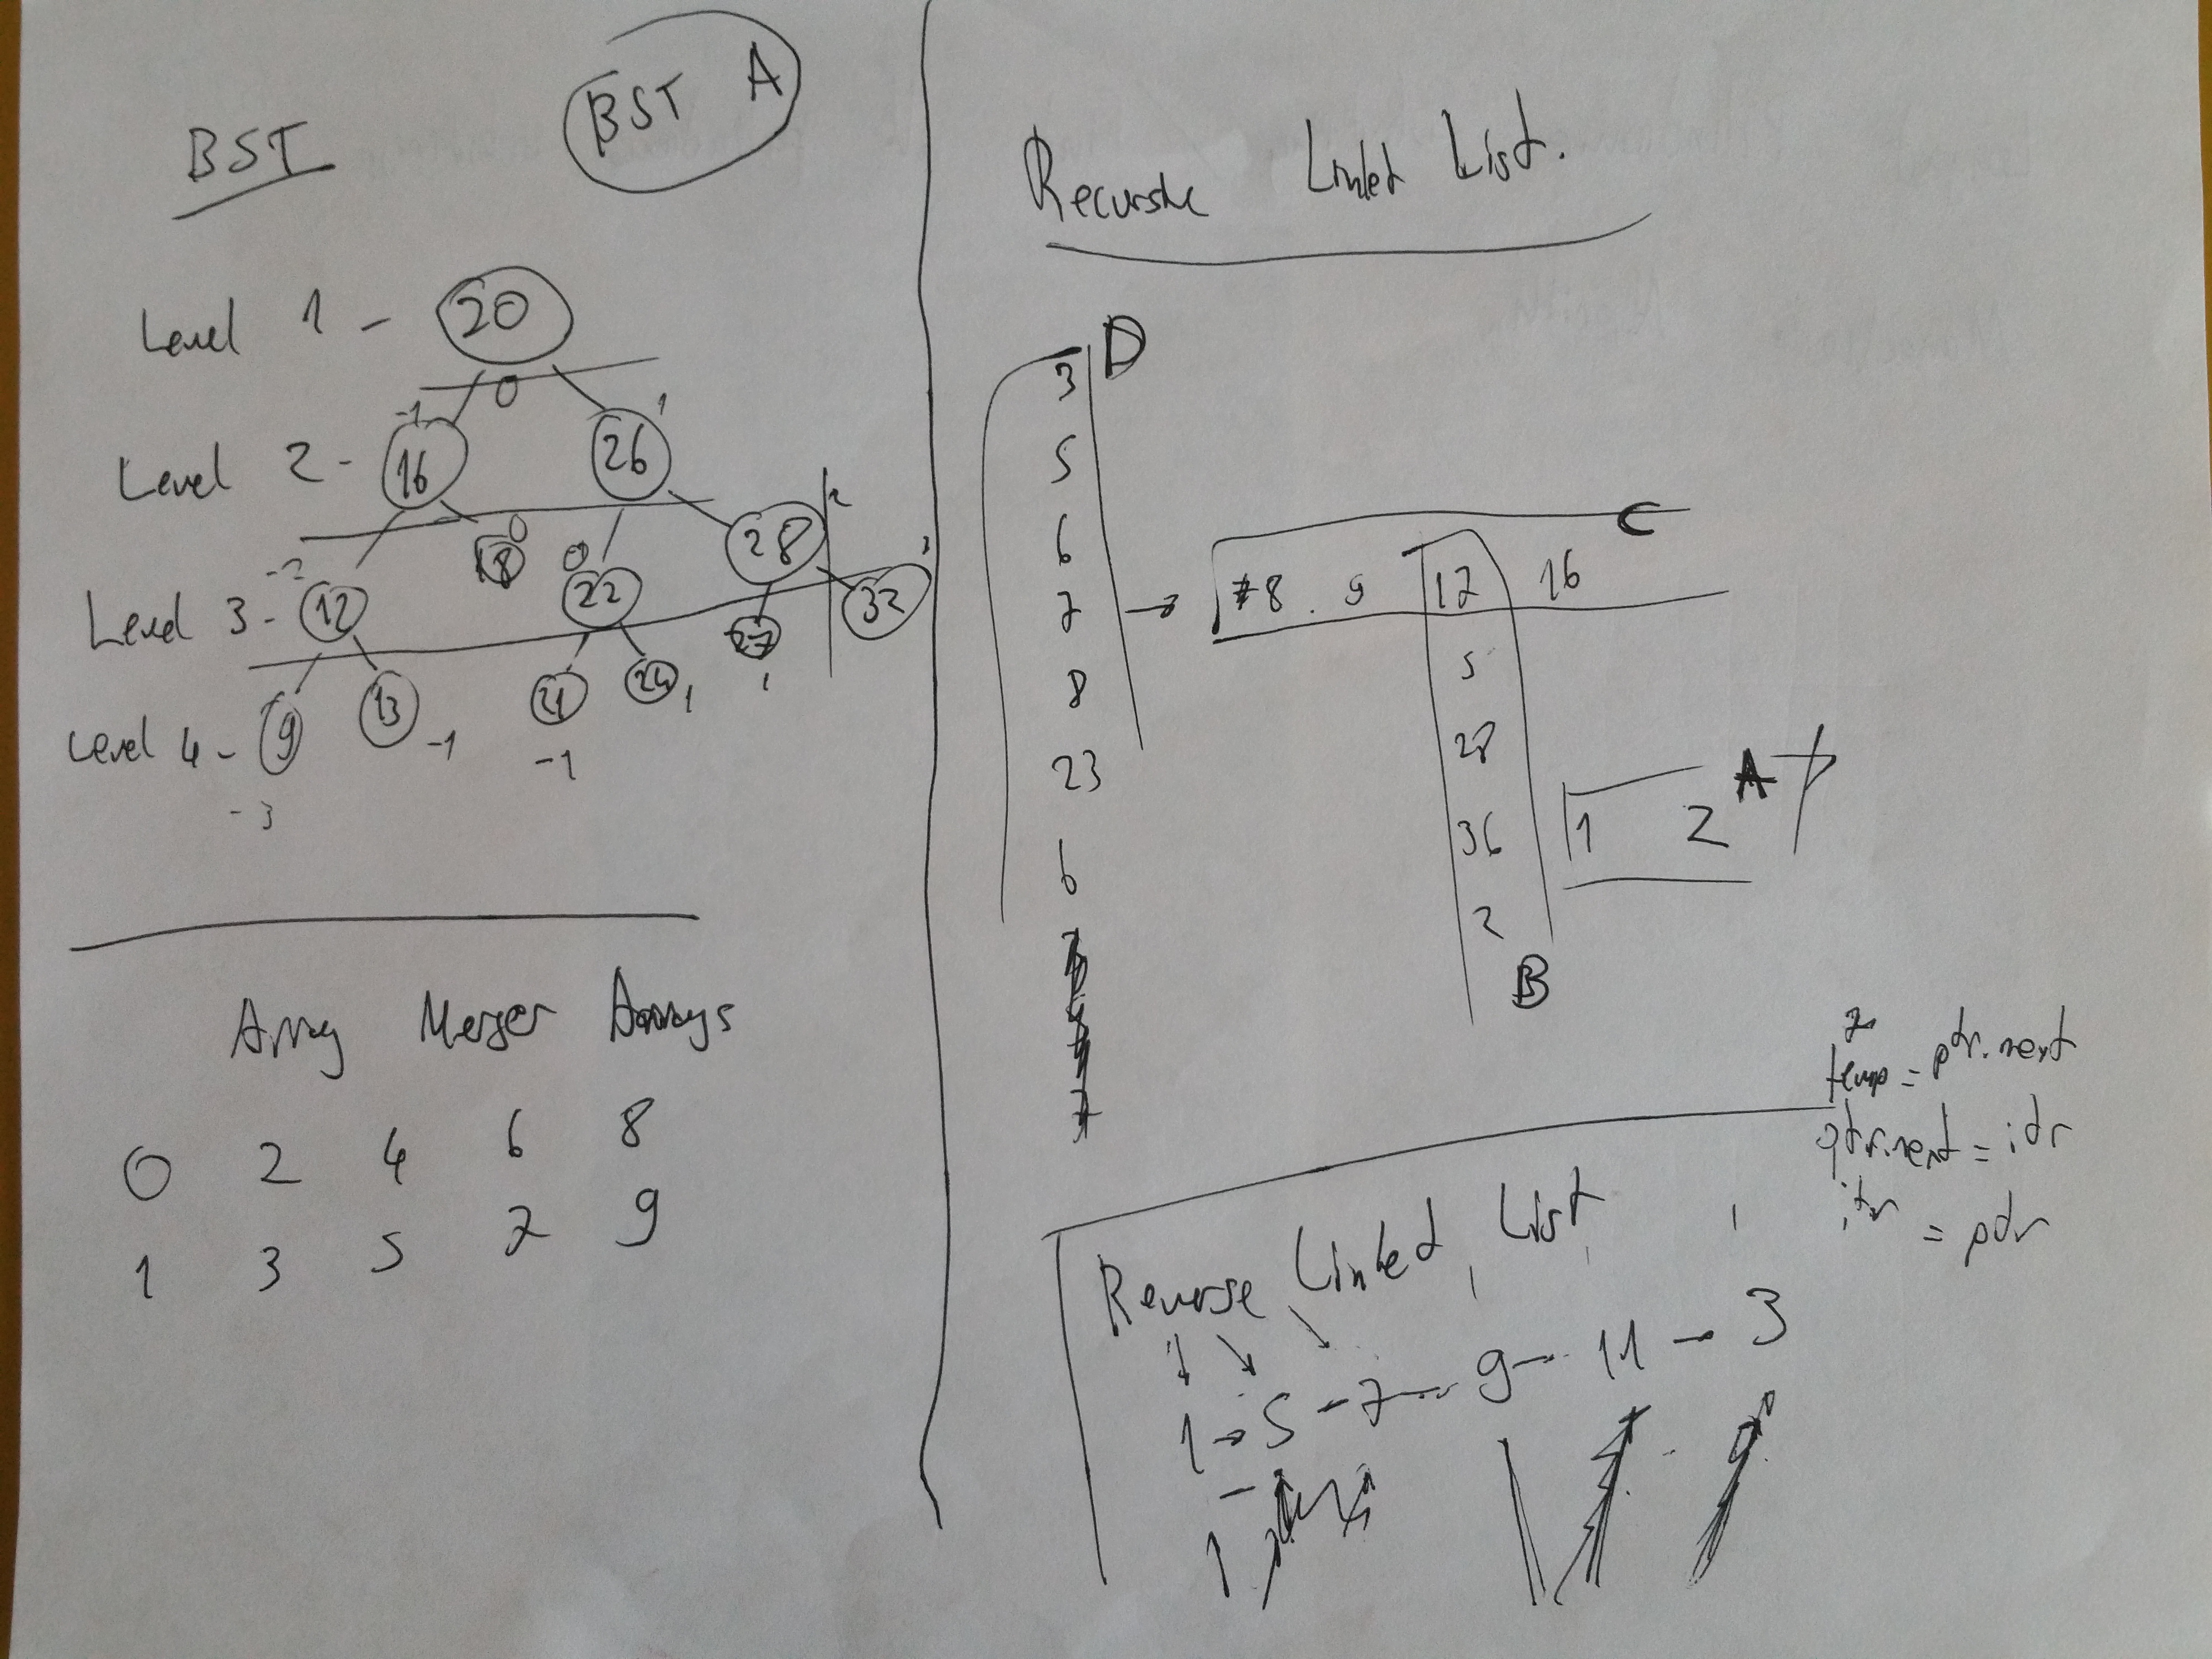 BST
BST A
Level 1 - 20
0
-1 1
Level 2 - 16 26
28 2
0 0
18
-2 3
Level 3 - 12 22 32
27
1
Level 4 - 9 13 21 24 1
-1 -1
-3
Array Merger Arrays
0 2 4 6 8
1 3 5 7 9
Recursive Linked List.
D
3
5
6
7 → 8 9 12 16
C
8
23
6
5
28
36
2
B
1 2 A
temp = ptr.next
ptr.next = itr
itr = ptr
Reverse Linked List
1 → 5 - 7 - 9 - 11 - 3